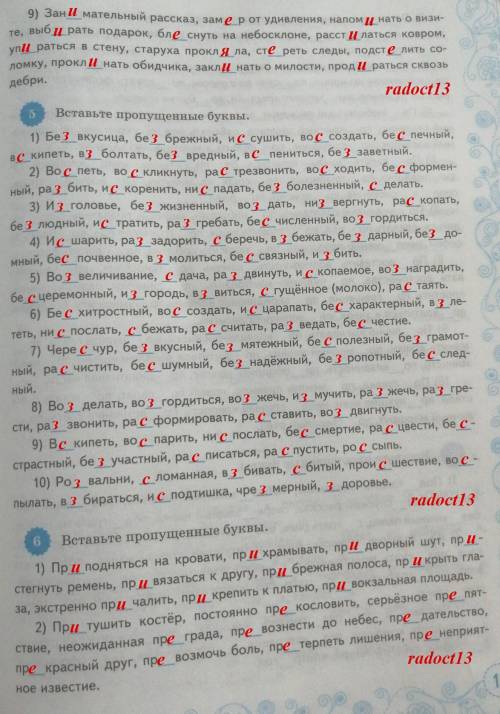 9) Занимательный рассказ, замер от удивления, напоминать о визи-
те, выбирать подарок, блеснуть на небосклоне, расстилаться ковром,
упираться в стену, старуха прокляла, стереть следы, подстелить со-
ломку, проклинать обидчика, заклинать о милости, продираться сквозь
дебри.
radoct13
5 Вставьте пропущенные буквы.
1) Безвкусица, безбрежный, иссушить, воссоздать, беспечный,
вскипеть, взболтать, безвредный, вспениться, беззаветный.
2) Воспеть, воскликнуть, растрезвонить, восходить, бесформен-
ный, разбить, искоренить, ниспадать, безболезненный, сделать.
3) Изголовье, безжизненный, воздать, низвергнуть, раскопать,
безлюдный, истратить, разгребать, бесчисленный, возгордиться.
4) Исшарить, раззадорить, сберечь, взбежать, бездарный, бездо-
мный, беспочвенное, взмолиться, бессвязный, избить.
5) Возвеличивание, сдача, раздвинуть, ископаемое, вознаградить,
бесцеремонный, изгородь, взвиться, сгущённое (молоко), растаять.
6) Бесхитростный, воссоздать, исцарапать, бесхарактерный, взле-
теть, ниспослать, сбежать, рассчитать, разведать, бесчестие.
7) Чересчур, безвкусный, безмятежный, бесполезный, безграмот-
ный, расчистить, бесшумный, безнадёжный, безропотный, бесслед-
ный.
8) Возделать, возгордиться, возжечь, измучить, разжечь, разгре-
сти, раззвонить, расформировать, расставить, воздвигнуть.
9) Вскипеть, воспарить, ниспослать, бессмертие, расцвести, бес-
страстный, безучастный, расписаться, распустить, россыпь.
10) Розвальни, сломанная, взбивать, сбитый, происшествие, вос-
пылать, взбираться, исподтишка, чрезмерный, здоровье.
radoct13
6 Вставьте пропущенные буквы.
1) Приподняться на кровати, прихрамывать, придворный шут, при-
стегнуть ремень, привязаться к другу, прибрежная полоса, прикрыть гла-
за, экстренно причалить, прикрепить к платью, привокзальная площадь.
2) Притушить костёр, постоянно прекословить, серьёзное препят-
ствие, неожиданная преграда, превознести до небес, предательство,
прекрасный друг, превозмочь боль, претерпеть лишения, пренеприят-
ное известие.
radoct13